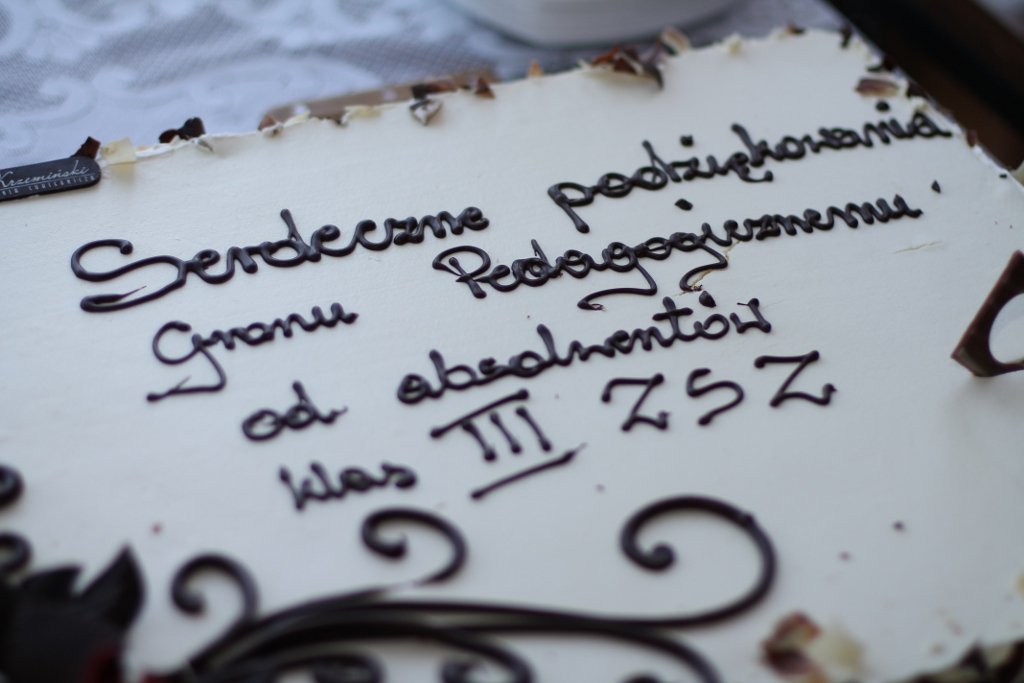 Krzemiński
Serdeczne podziękowania
Gronu Pedagogicznemu
od absolwentów
klas III ZSZ